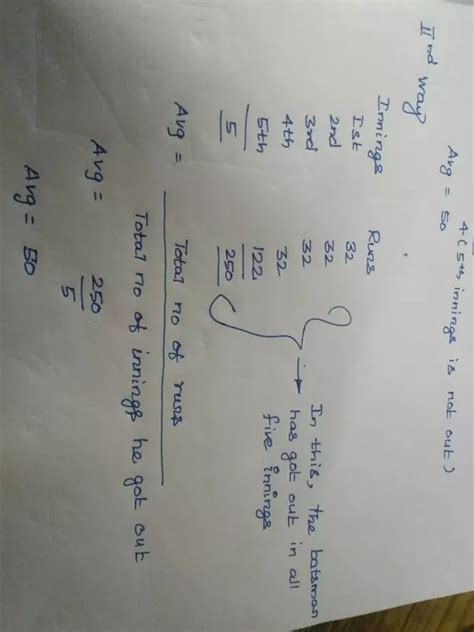 4 (5th innings is not out)
Avg = 50
IInd way
Innings Runs
Ist 32
2nd 32
3rd 32
4th 32
5th 122
5 250
In this, the batsman
has got out in all
five innings
Avg = Total no of runs
Total no of innings he got out
Avg = 250
5
Avg = 50